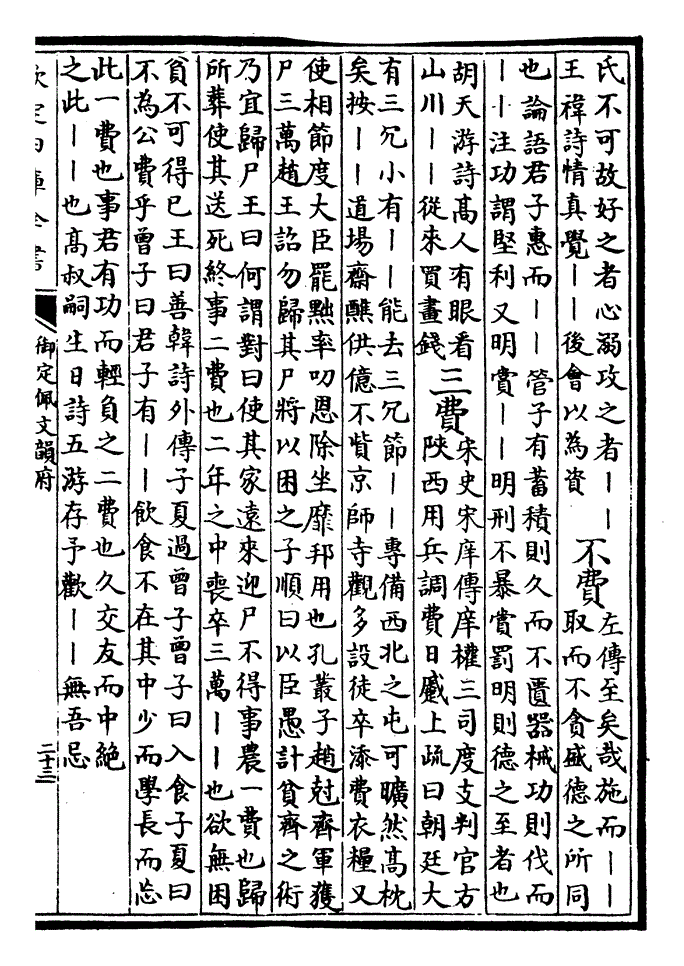 氏不可故好之者心溺攻之者丨丨
王禕詩情真覺丨丨後會以為資
不費
左傳至矣哉施而丨丨
取而不貪盛德之所同
也論語君子惠而丨丨管子有蓄積則久而不匱器械功則伐而
丨丨注功謂堅利又明賞丨丨明刑不暴賞罰明則德之至者也
胡天游詩髙人有眼看
山川丨丨從來買畫錢
三費
宋史宋庠傳庠權三司度支判官方
陜西用兵調費日蹙上疏曰朝廷大
有三冗小有丨丨能去三冗節丨丨專備西北之屯可曠然髙枕
矣按丨丨道場齋醮供億不貲京師寺觀多設徒卒添費衣糧又
使相節度大臣罷黜率叨恩除坐靡邦用也孔叢子趙尅齊軍獲
尸三萬趙王詔勿歸其尸將以困之子順曰以臣愚計貧齊之術
乃宜歸尸王曰何謂對曰使其家遠來迎尸不得事農一費也歸
所葬使其送死終事二費也二年之中喪卒三萬丨丨也欲無困
貧不可得已王曰善韓詩外傳子夏過曾子曾子曰入食子夏曰
不為公費乎曾子曰君子有丨丨飲食不在其中少而學長而忘
此一費也事君有功而輕負之二費也久交友而中絶
之此丨丨也髙叔嗣生日詩五游存予歡丨丨無吾忌
欽定四庫全書
御定佩文韻府
二十三